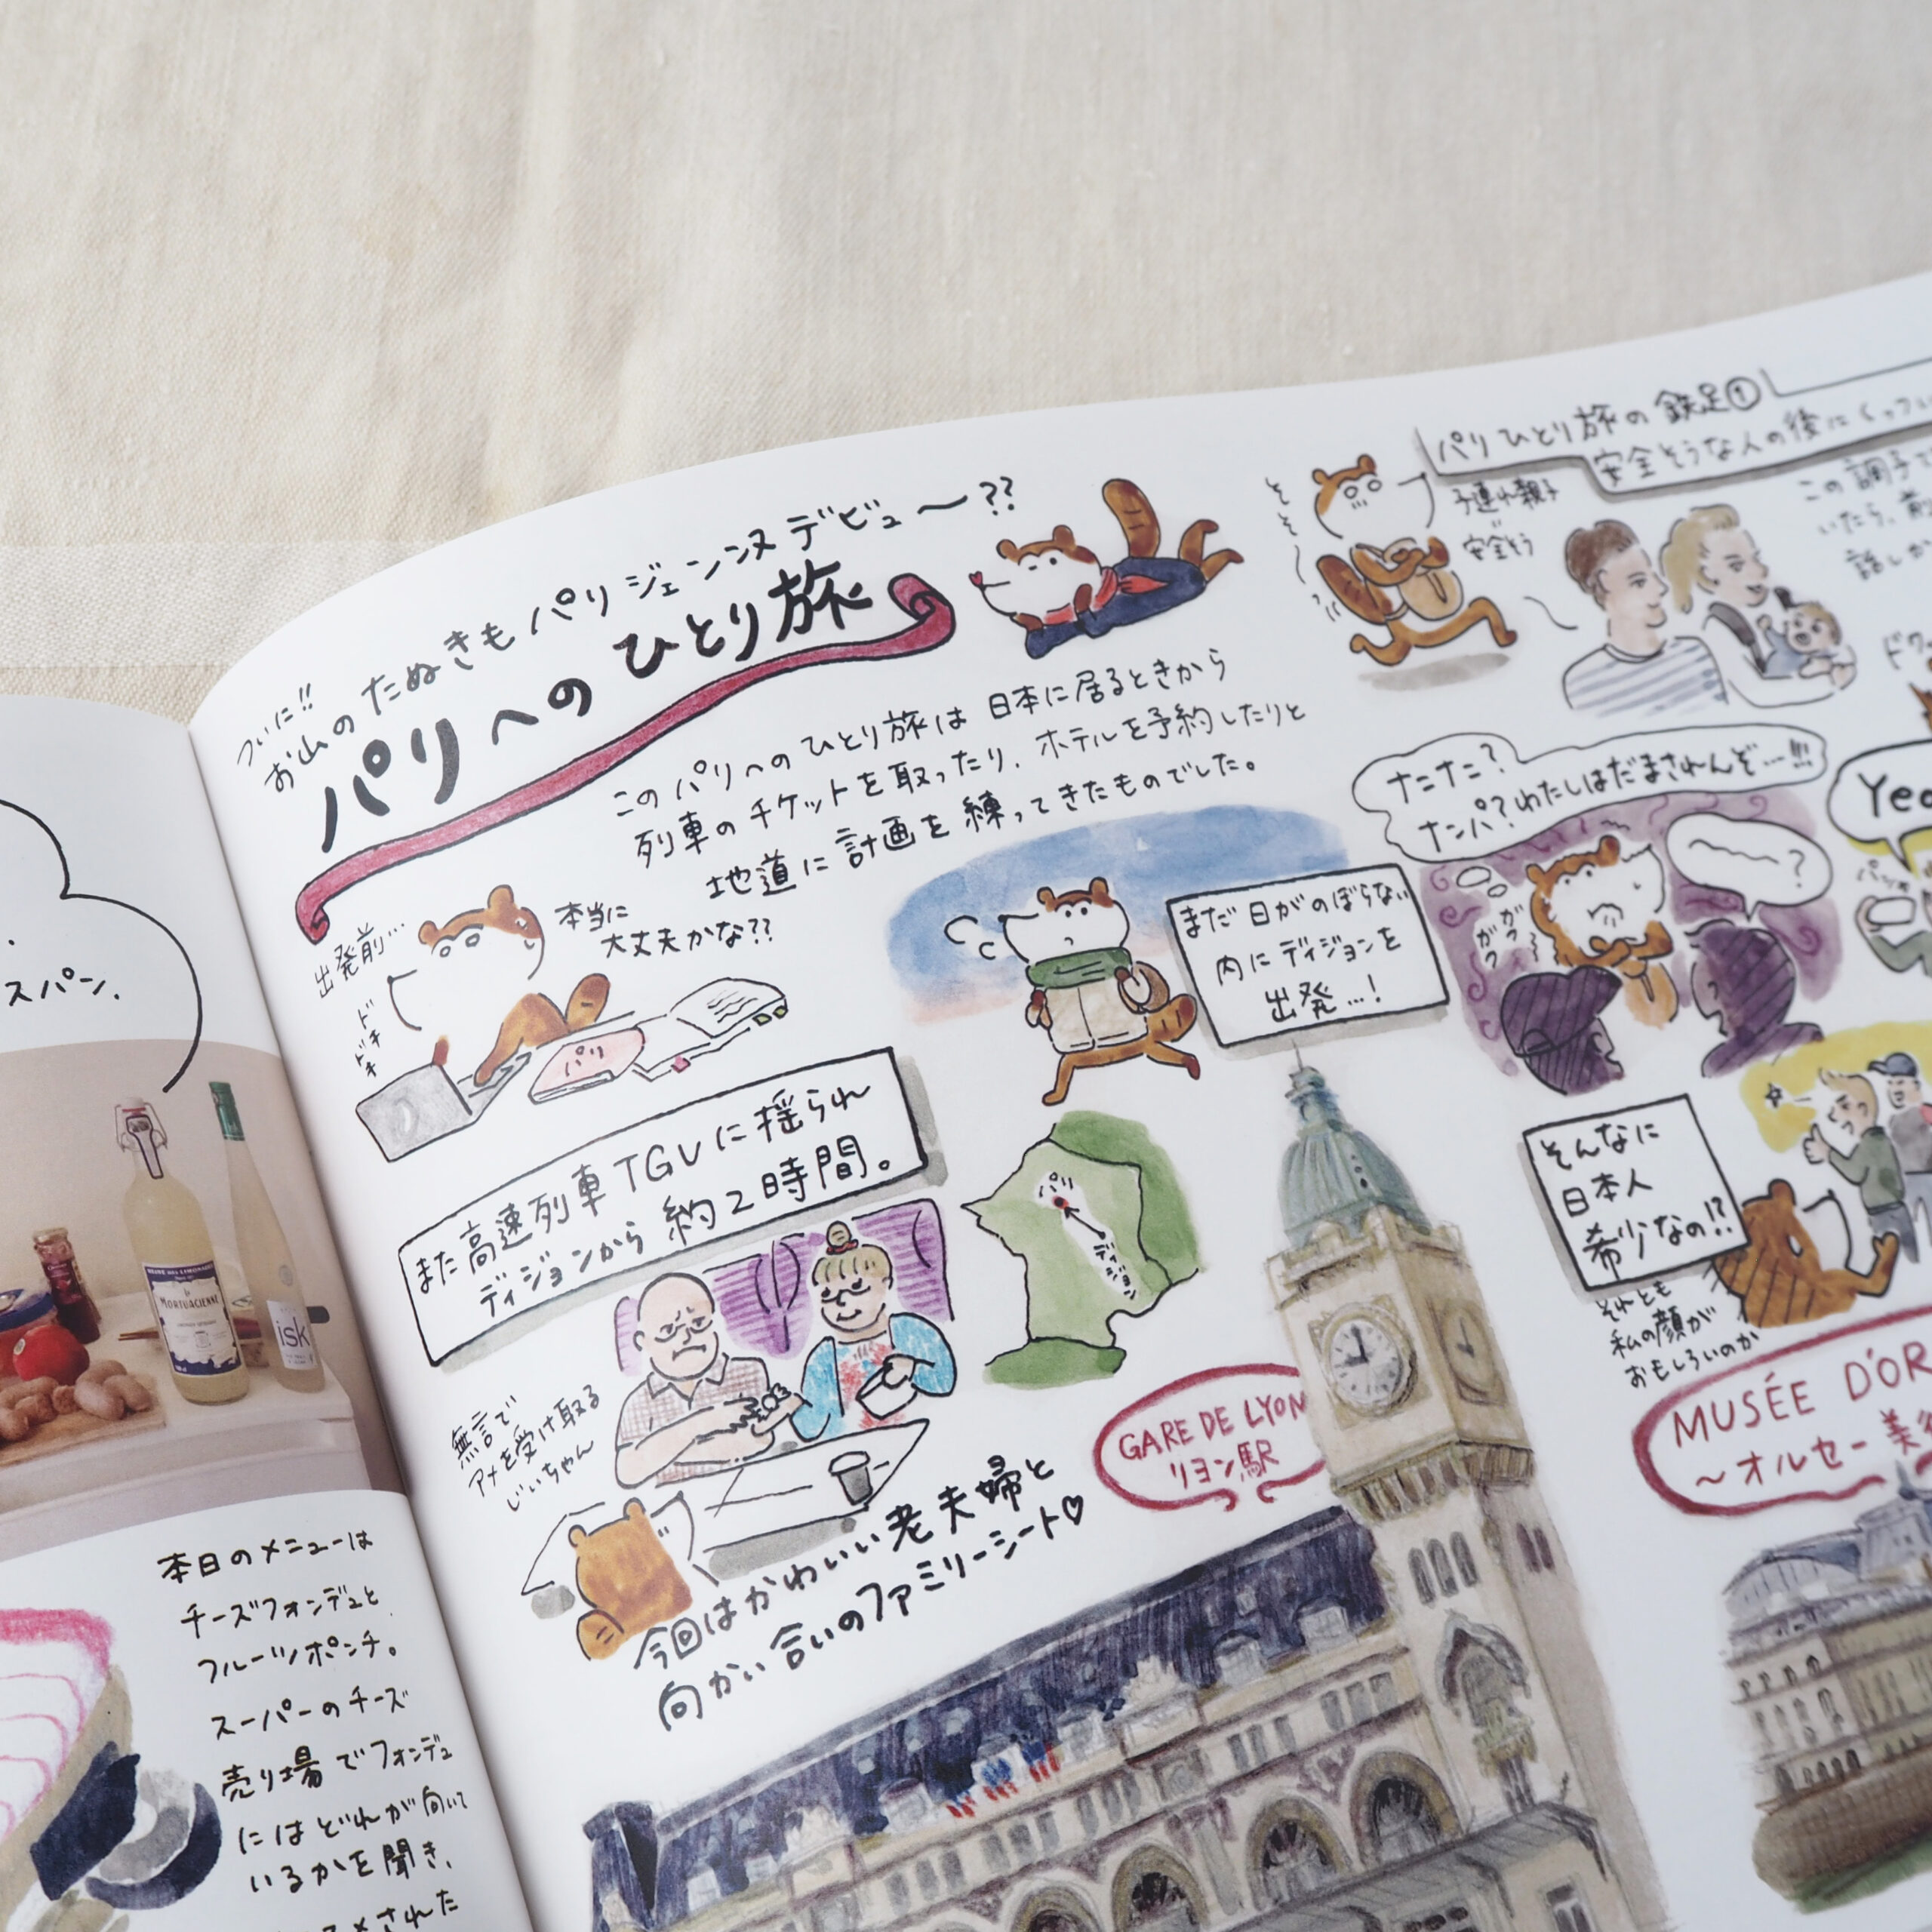 スパン.
MORTUACIENNE
isk
本日のメニューは
チーズフォンデュと
フルーツポンチ。
スーパーのチーズ
売り場でフォンデュ
にはどれが向いて
いるかを聞き、
された
ついに!!
お山のたぬきもパリジェンヌデビュ〜??
パリへのひとり旅
このパリへのひとり旅は日本に居るときから
列車のチケットを取ったり、ホテルを予約したりと
地道に計画を練ってきたものでした。
出発前…
本当に
大丈夫かな??
ドキ
ドキ
パリ
まだ日がのぼらない
内にディジョンを
出発…!
また高速列車TGVに揺られ
ディジョンから約2時間。
パリ
ディジョン
無言で
アメを受け取る
じいちゃん
今回はかわいい老夫婦と
向かい合いのファミリーシート♡
GARE DE LYON
リヨン駅
パリひとり旅の鉄則①
安全そうな人の後にくっつい
そそ〜
子連れ親子
安全そう
この調子で
いたら、前
話しか
ドク
ナニナニ?
ナンパ?わたしはだまされんぞ…!!!
?
ガク
ガク
Yea
そんなに
日本人
希少なの!?
それとも
私の顔が
おもしろいのか
MUSÉE D'OR
〜オルセー美